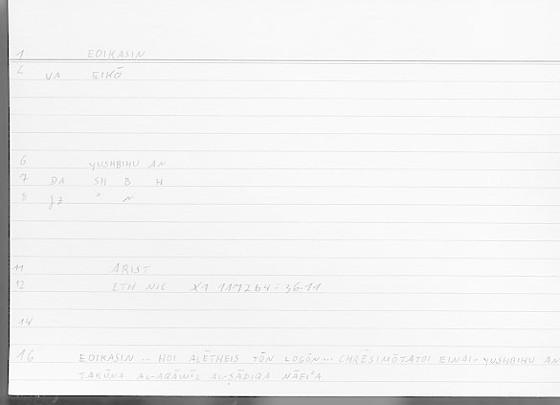 1 EOIKASIN
2 VA EIKŌ
6 YUSHBIHU AN
7 DA SH B H
8 JZ " N
11 ARIST
12 ETH NIC X1 117264 = 36-11
14
16 EOIKASIN .. HOI ALĒTHEIS TŌN LOGŌN ... CHRĒSIMŌTATOI EINAI = YUSHBIHU AN
TAKŪNA AL-AQĀWĪL AL-ṢĀDIQA NĀFIʿA